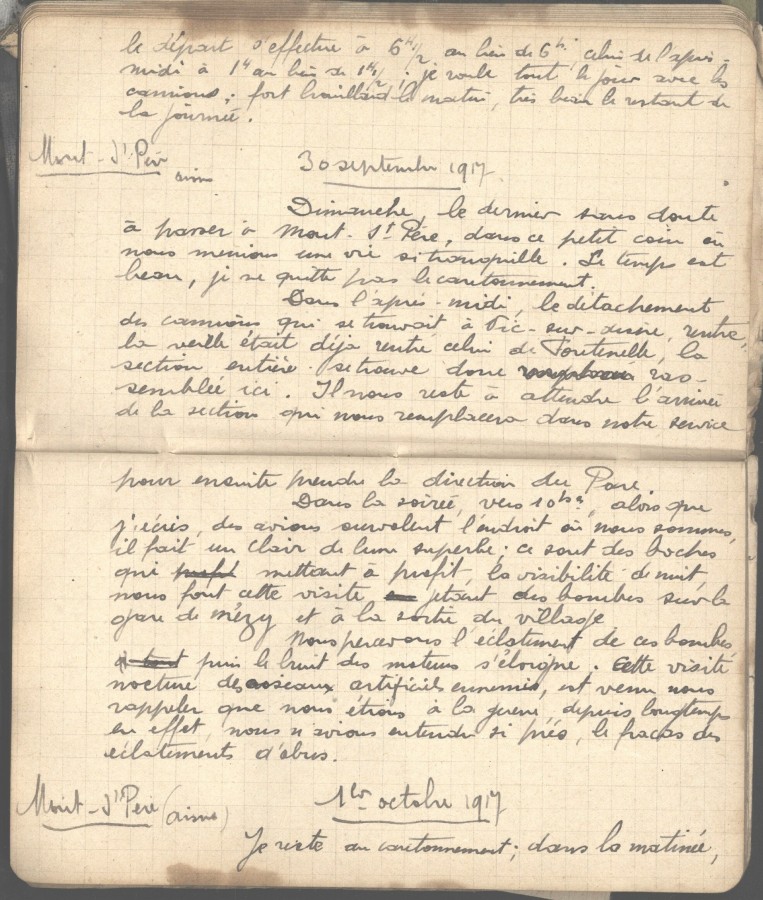 le départ s'effectue à 6 H 1/2 au lieu de 6 h, celui de l'après-
midi à 1 H au lieu de 1 H 1/2 ; je roule tout le jour avec les
camions ; fort brouillard le matin, très beau le restant de
la journée.
Mont-St-Père
aisne
30 septembre 1917.
Dimanche, le dernier sans doute
à passer à Mont-St Père, dans ce petit coin où
nous menions une vie si tranquille. Le temps est
beau, je ne quitte pas le cantonnement.
Dans l'après-midi, le détachement
des camions qui se trouvait à Vic-sur-aisne, rentre,
la veille était déjà rentré celui de Fontenelle, la
section entière se trouve donc ras-
semblée ici. Il nous reste à attendre l'arrivée
de la section qui nous remplacera dans notre service
pour ensuite prendre la direction du Parc.
Dans la soirée, vers 10 h, alors que
j'écris, des avions survolent l'endroit où nous sommes,
il fait un clair de lune superbe ; ce sont des boches
qui profit mettant à profit, la visibilité de nuit,
nous font cette visite jetant des bombes sur la
gare de Mézy et à la sortie du village
Nous percevons l'éclatement de ces bombes,
puis le bruit des moteurs s'éloigne. Cette visite
nocture des oiseaux artificiels ennemis, est venu nous
rappeler que nous étions à la guerre, depuis longtemps
en effet, nous n'avions entendu si près, le fracas des
éclatements d'obus.
Mont-St Père (aisne)
1er octobre 1917
Je reste au cantonnement ; dans la matinée,